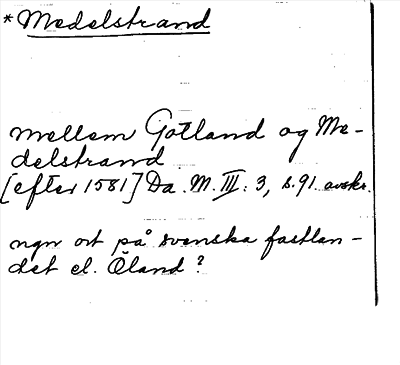 *Medelstrand
mellem Gotland og Me-
delstrand
[efter 1581] Da. M. III: 3, s. 91 avskr.
ngn ort på svenska fastlan-
det el. Öland?